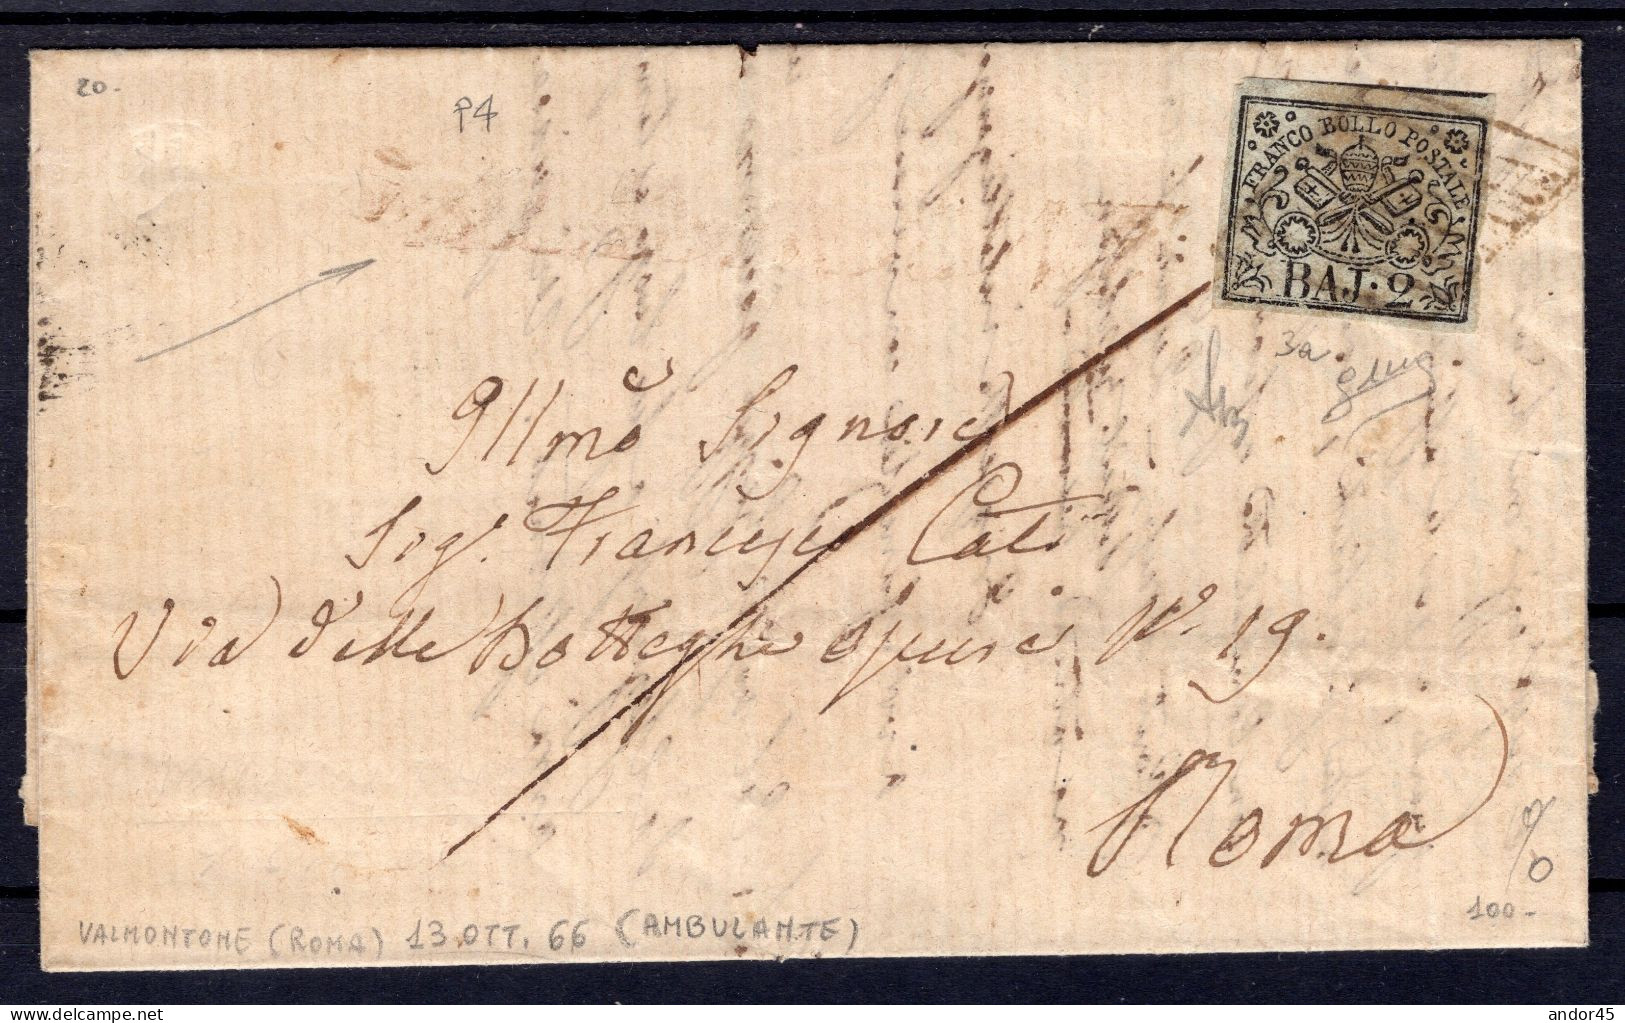 20-
P4
FRANCO BOLLO POSTALE
BAJ. 2
3a
Illmo Signore
Sig. Francesco Cati
Via delle Botteghe oscure N. 19.
Roma
VALMONTONE (ROMA) 13 OTT. 66 (AMBULANTE)
100-
delcampe.net
andor45